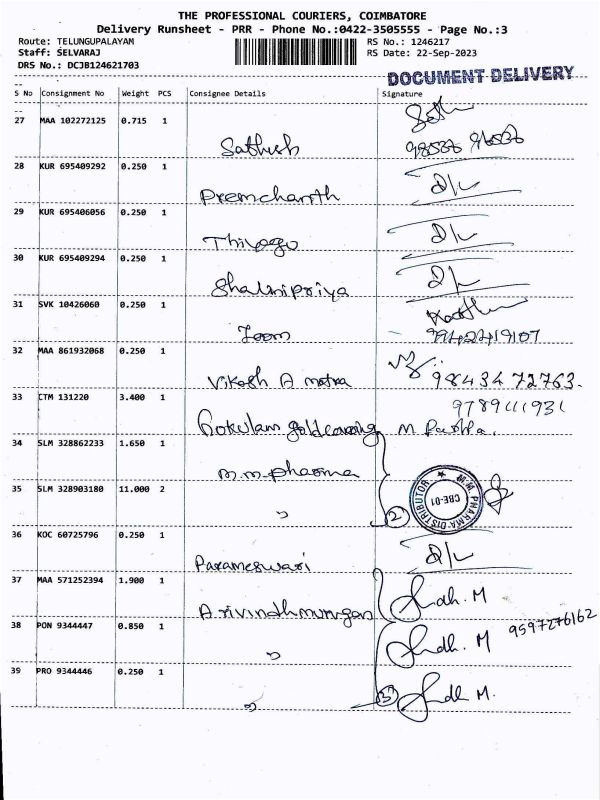 THE PROFESSIONAL COURIERS, COIMBATORE
Delivery Runsheet - PRR - Phone No.:0422-3505555 - Page No.:3
Route: TELUNGUPALAYAM RS No.: 1246217
Staff: SELVARAJ RS Date: 22-Sep-2023
DRS No.: DCJB124621703
DOCUMENT DELIVERY
S No Consignment No Weight PCS Consignee Details Signature
27 MAA 102272125 0.715 1
Sathish
28 KUR 695409292 0.250 1
Premchanth
29 KUR 695406056 0.250 1
Thiyagu
30 KUR 695409294 0.250 1
Shalinipriya
31 SVK 10426060 0.250 1
Zoom 9942419107
32 MAA 861932068 0.250 1
Vikash A matra 98434 72763.
33 CTM 131220 3.400 1 9789411931
Gokulam gold M Pushpa.
34 SLM 328862233 1.650 1
m.m. pharma
35 SLM 328903180 11.000 2
" 2
M.M. PHARMA-DISTRIBUTOR
CBE-01
36 KOC 60725796 0.250 1
Parameswari
37 MAA 571252394 1.900 1
Arivindhmurugan Sndh. M
38 PON 9344447 0.850 1 9597276162
" Sndh. M
39 PRO 9344446 0.250 1
" 3 Sndh M.